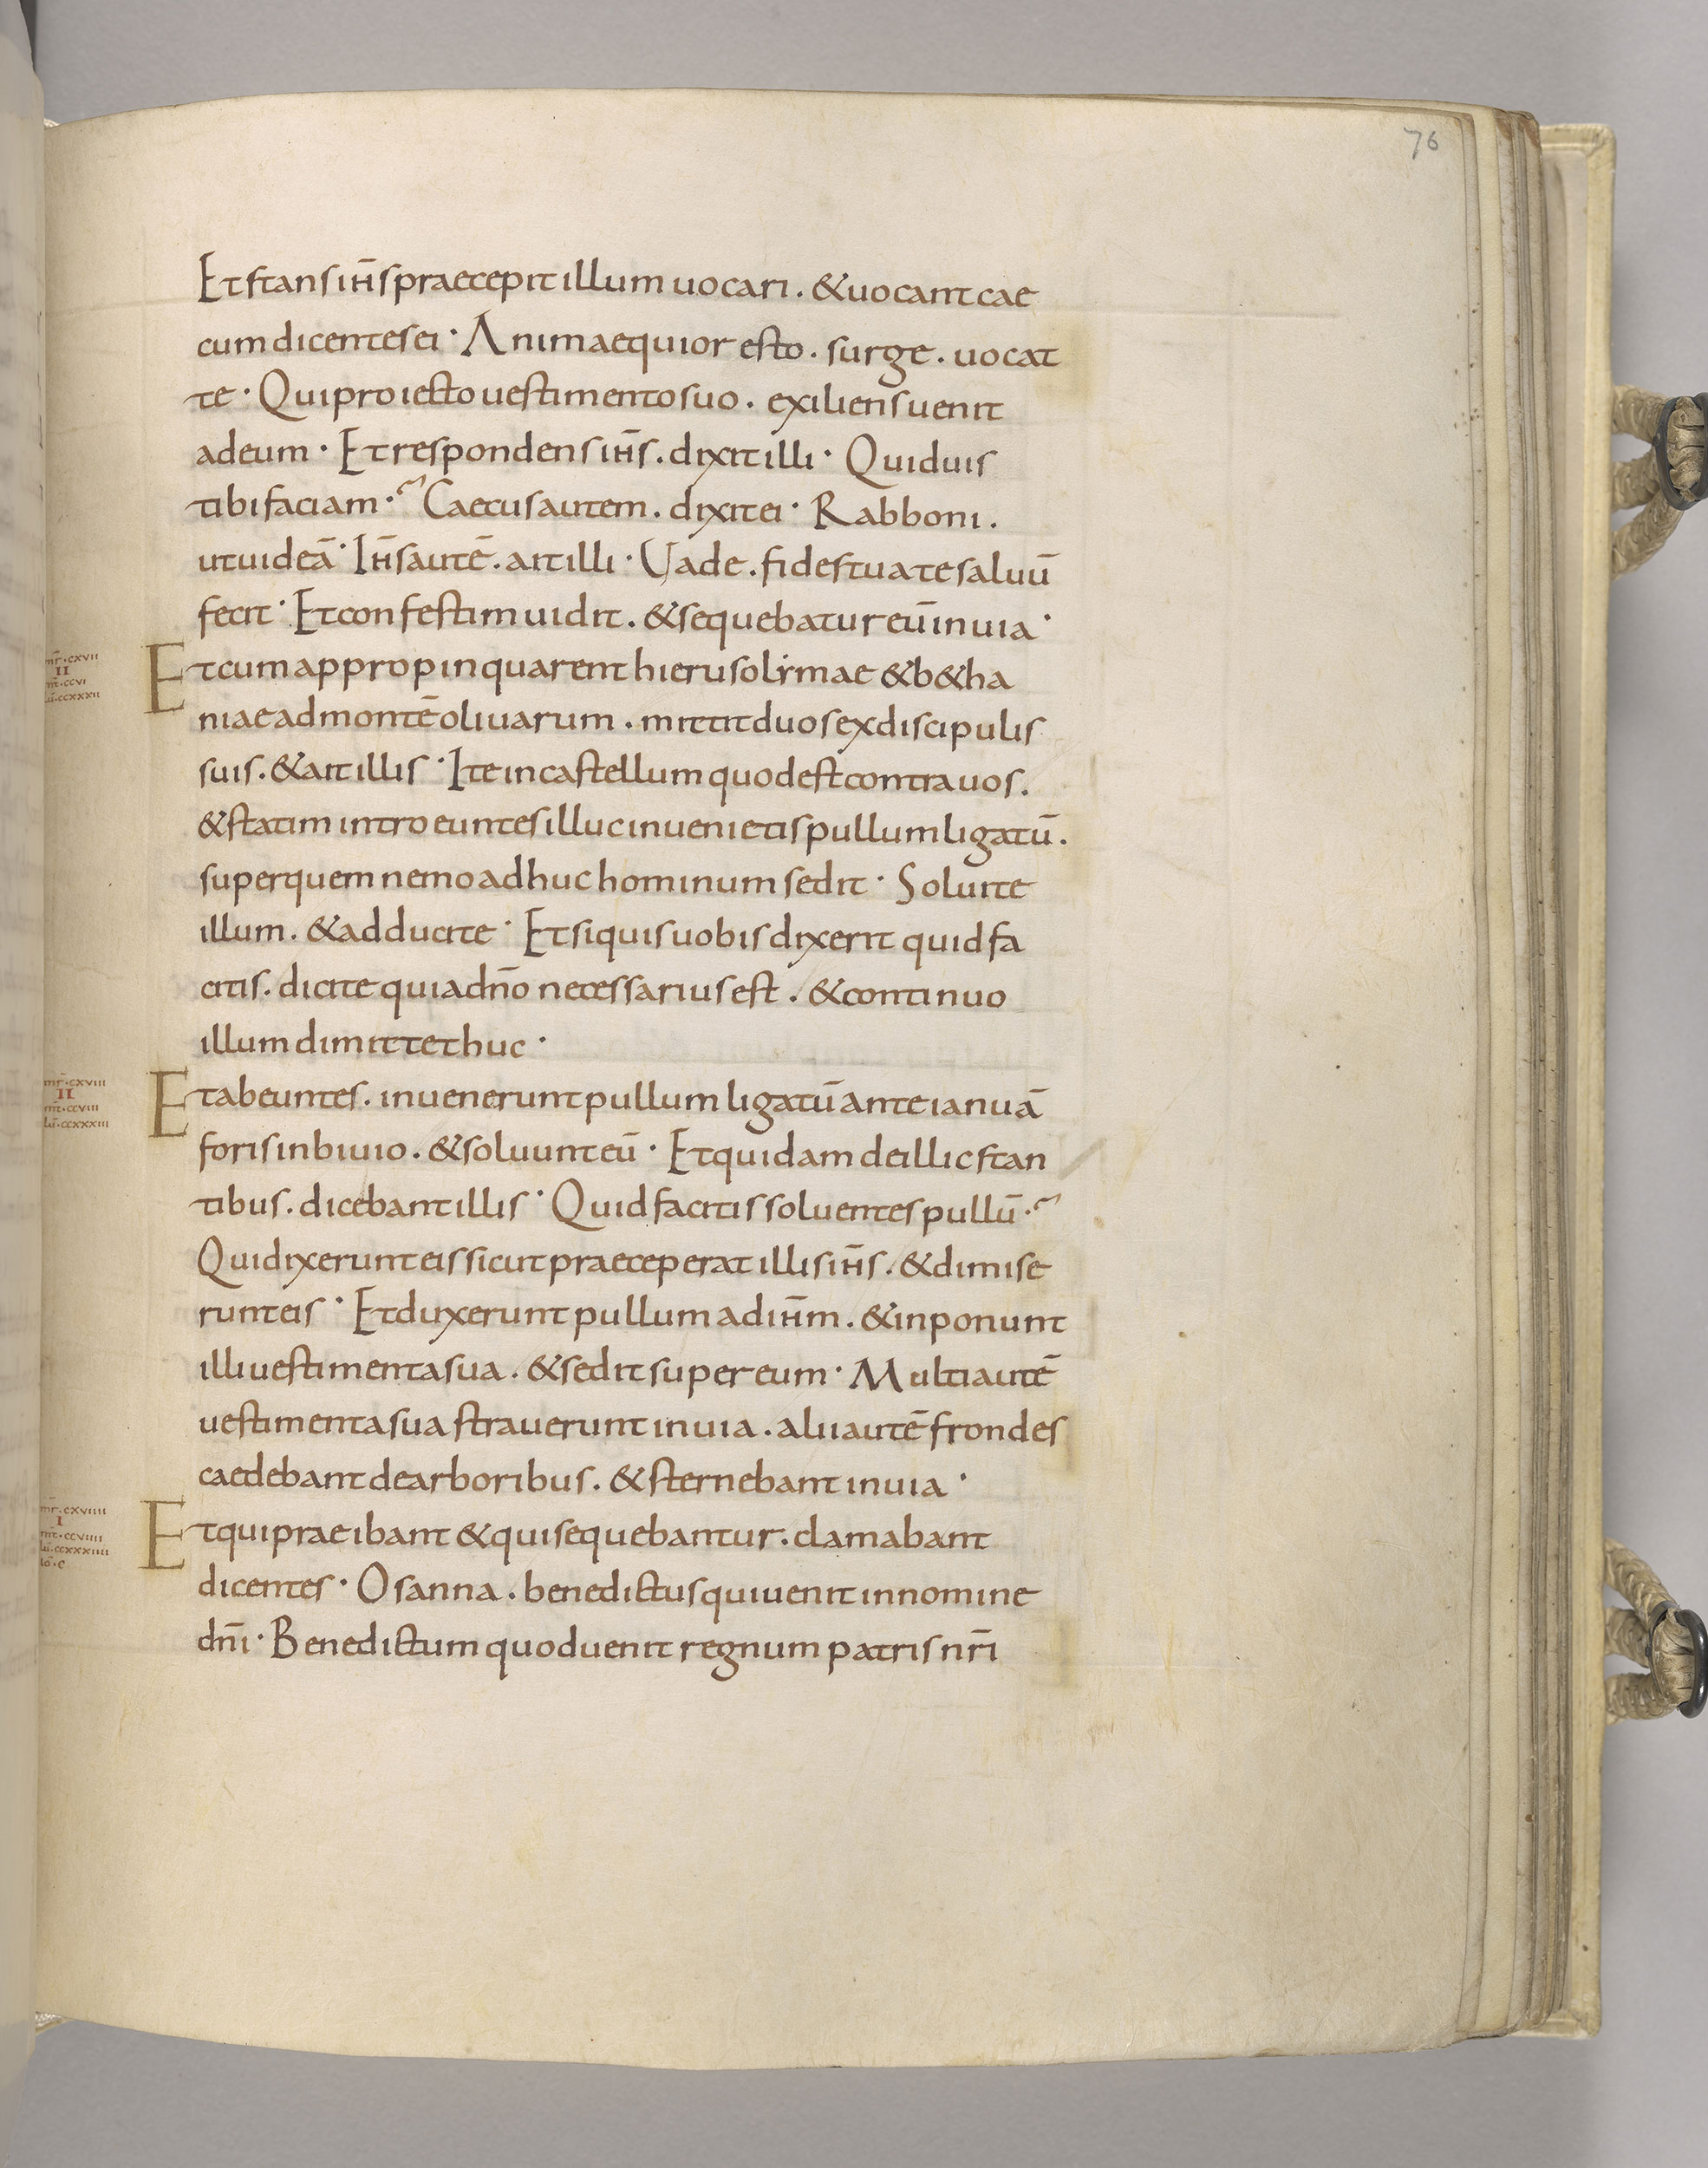 76
Et stans ih̄s praecepit illum uocari . & uocant cae
cum dicentes ei · Animaequior esto . surge . uocat
te · Qui proiecto uestimento suo . exiliens uenit
ad eum · Et respondens ih̄s . dixit illi · Quid uis
tibi faciam ·~ Caecus autem . dixit ei · Rabboni .
ut uideā · Ih̄s autē . ait illi · Uade . fides tua te saluū
fecit · Et confestim uidit . & sequebatur eū in uia ·
mr̄ · cxvii
II
mt̄ · ccvi
lū · ccxxxii
Et cum appropinquarent hierusolẏmae & b&ha
niae ad montē oliuarum . mittit duos ex discipulis
suis . & ait illis · Ite in castellum quod est contra uos .
& statim introeuntes illuc inuenietis pullum ligatū .
super quem nemo adhuc hominum sedit · Soluite
illum . & adducite · Et si quis uobis dixerit quid fa
citis . dicite quia dn̄o necessarius est . & continuo
illum dimittet huc ·
mr̄ · cxviii
II
mt̄ · ccviii
lū · ccxxxiii
Et abeuntes . inuenerunt pullum ligatū ante ianuā
foris in biuio . & soluunt eū · Et quidam de illic stan
tibus . dicebant illis · Quid facitis soluentes pullū ·~
Qui dixerunt eis sicut praeceperat illis ih̄s . & dimise
runt eis · Et duxerunt pullum ad ih̄m . & inponunt
illi uestimenta sua . & sedit super eum · Multi autē
uestimenta sua strauerunt in uia . alii autē frondes
caedebant de arboribus . & sternebant in uia ·
mr̄ · cxviiii
I
mt̄ · ccviiii
lū · ccxxxiiii
iō · c
Et qui praeibant & qui sequebantur . clamabant
dicentes · Osanna . benedictus qui uenit in nomine
dn̄i · Benedictum quod uenit regnum patris nr̄i